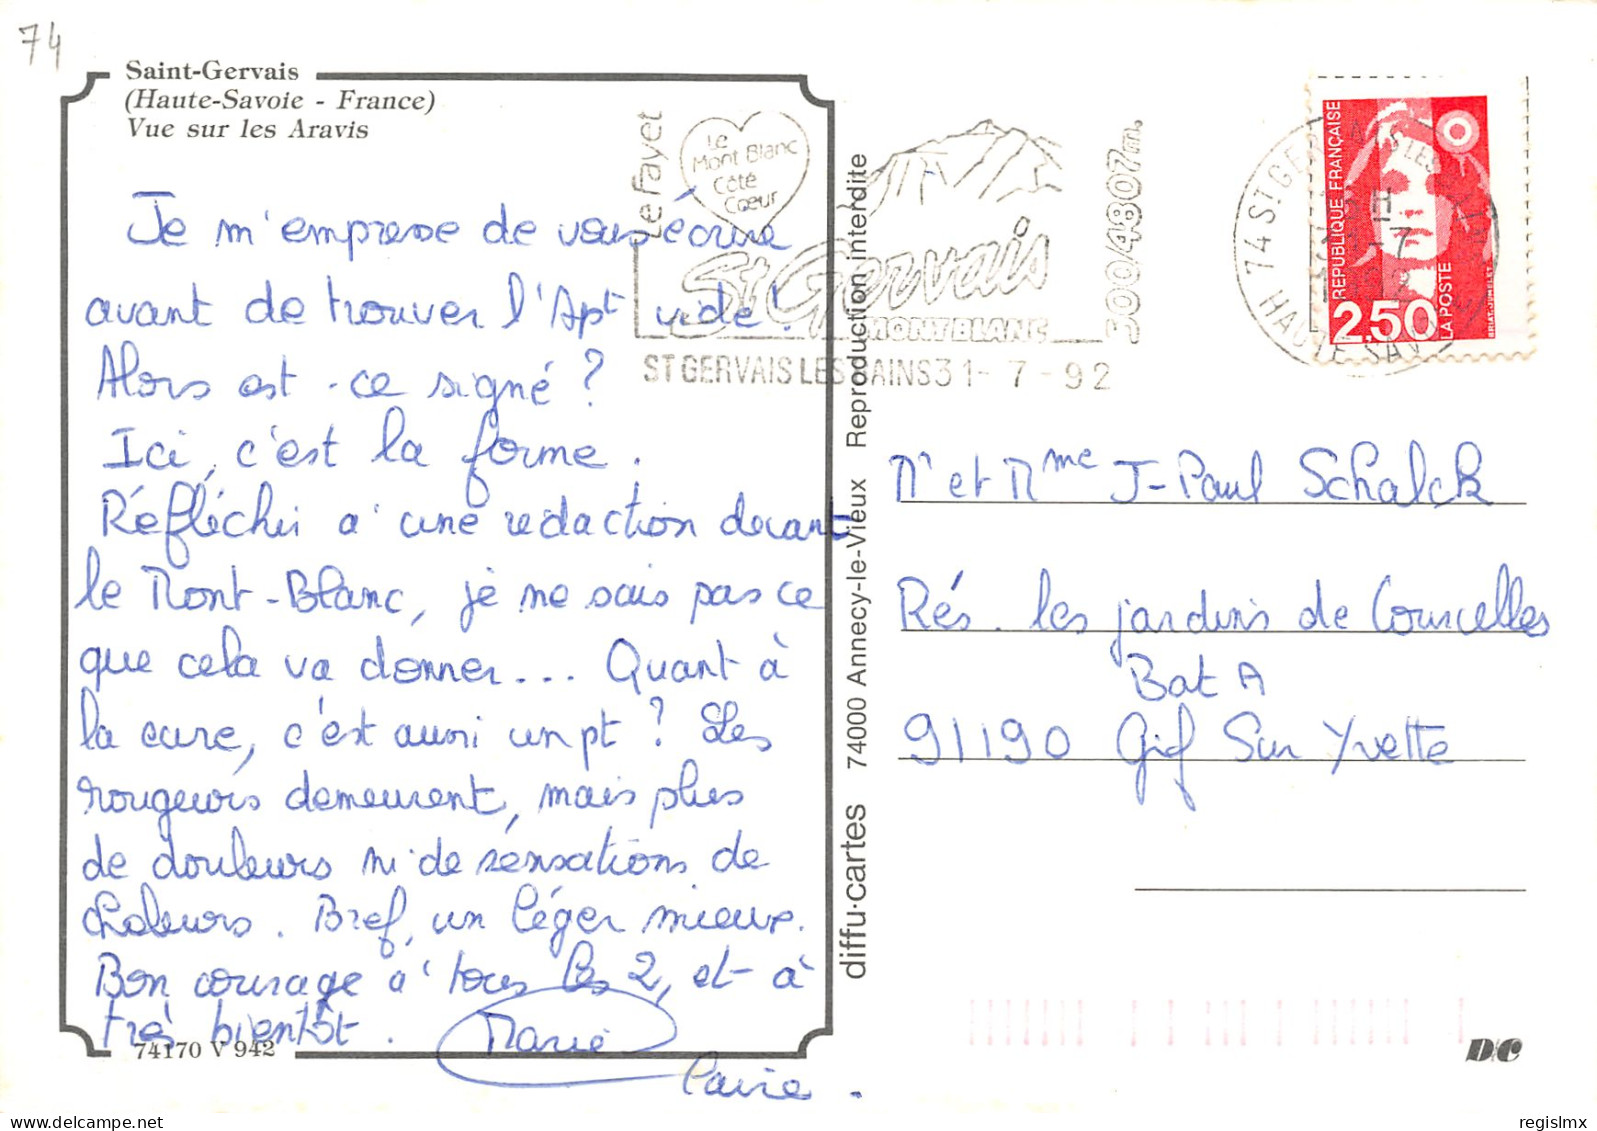 74
Saint-Gervais
(Haute-Savoie - France)
Vue sur les Aravis
Je m'empresse de vous écrire
avant de trouver l'Apt vide !
Alors est-ce signé ?
Ici, c'est la forme.
Réfléchir à une rédaction devant
le Mont-Blanc, je ne sais pas ce
que cela va donner... Quant à
la cure, c'est aussi un pt ? Les
rougeurs demeurent, mais plus
de douleurs ni de sensations de
chaleurs. Bref, un léger mieux.
Bon courage à tous les 2, et à
très bientôt.
Marie
Laure.
74170 V 942
Le Fayet
Le
Mont Blanc
Côté
Cœur
St Gervais
MONT BLANC
500/4807m.
ST GERVAIS LES BAINS 31-7-92
diffu·cartes 74000 Annecy-le-Vieux Reproduction interdite
REPUBLIQUE FRANÇAISE
2,50
LA POSTE
74 ST GERVAIS LES BAINS
HAUTE SAVOIE
Mr et Mme J-Paul Schalck
Rés. les jardins de Courcelles
Bat A
91190 Gif Sur Yvette
D/C
regislmx